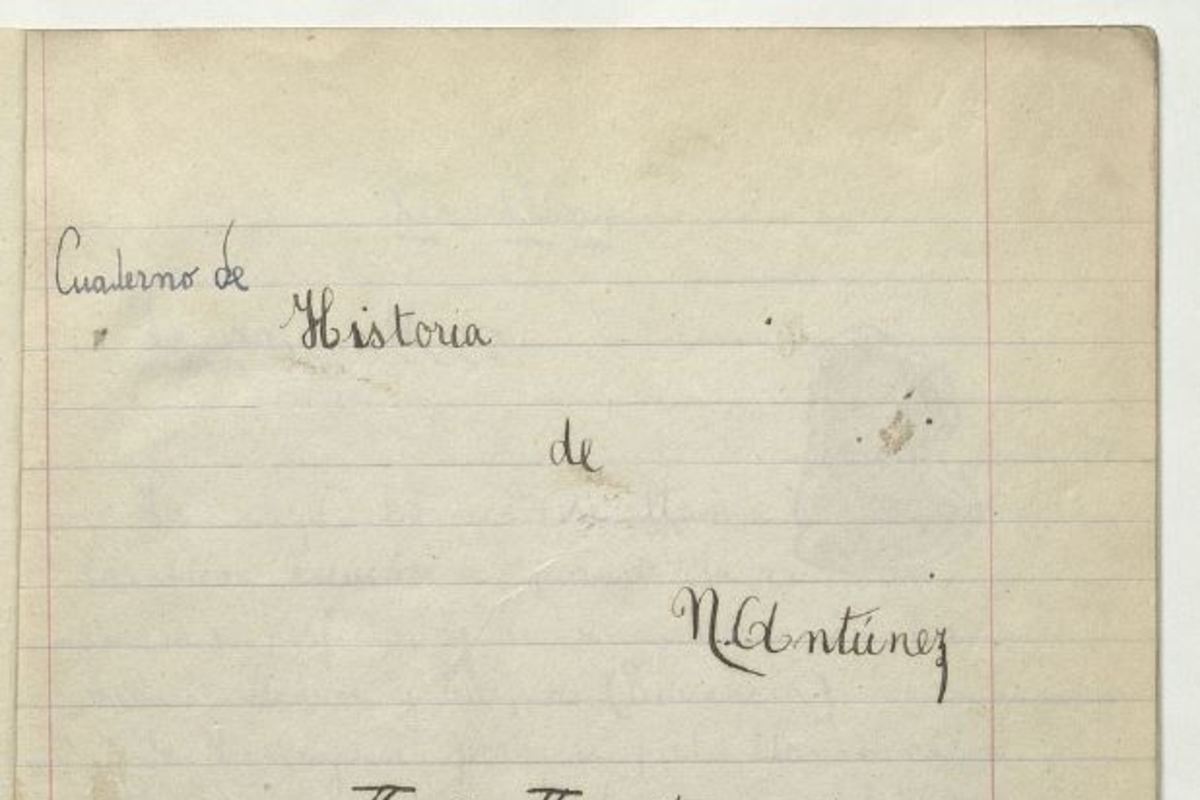 Cuaderno de
Historia
de
N. Antúnez